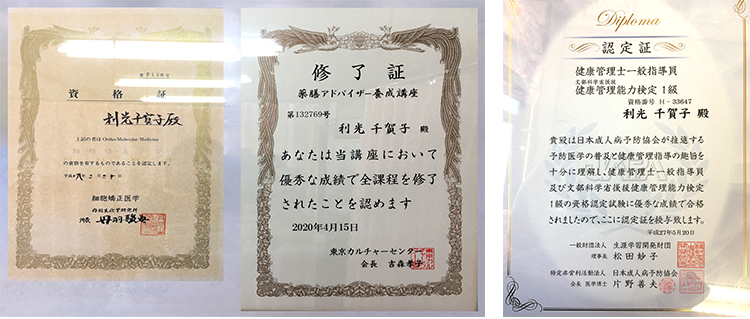 資格証
利光千賀子殿
上記の者は Ortho-Molecular Medicine
の資格を有するものであることを認定します。
細胞矯正医学
丹羽生化学研究所
所長
修了証
薬膳アドバイザー養成講座
第132769号
利光 千賀子 殿
あなたは当講座において
優秀な成績で全課程を修了
されたことを認めます
2020年4月15日
東京カルチャーセンター
会長 吉森孝子
Diploma
認定証
健康管理士一般指導員
文部科学省後援
健康管理能力検定1級
資格番号 H-33647
利光 千賀子 殿
貴殿は日本成人病予防協会が推進する
予防医学の普及と健康管理指導の趣旨を
十分に理解し、健康管理士一般指導員
及び文部科学省後援健康管理能力検定
1級の資格認定試験に優秀な成績で合格
されましたので、ここに認定証を授与致します。
平成27年5月20日
一般財団法人 生涯学習開発財団
理事長 松田妙子
特定非営利活動法人 日本成人病予防協会
会長 医学博士 片野善夫